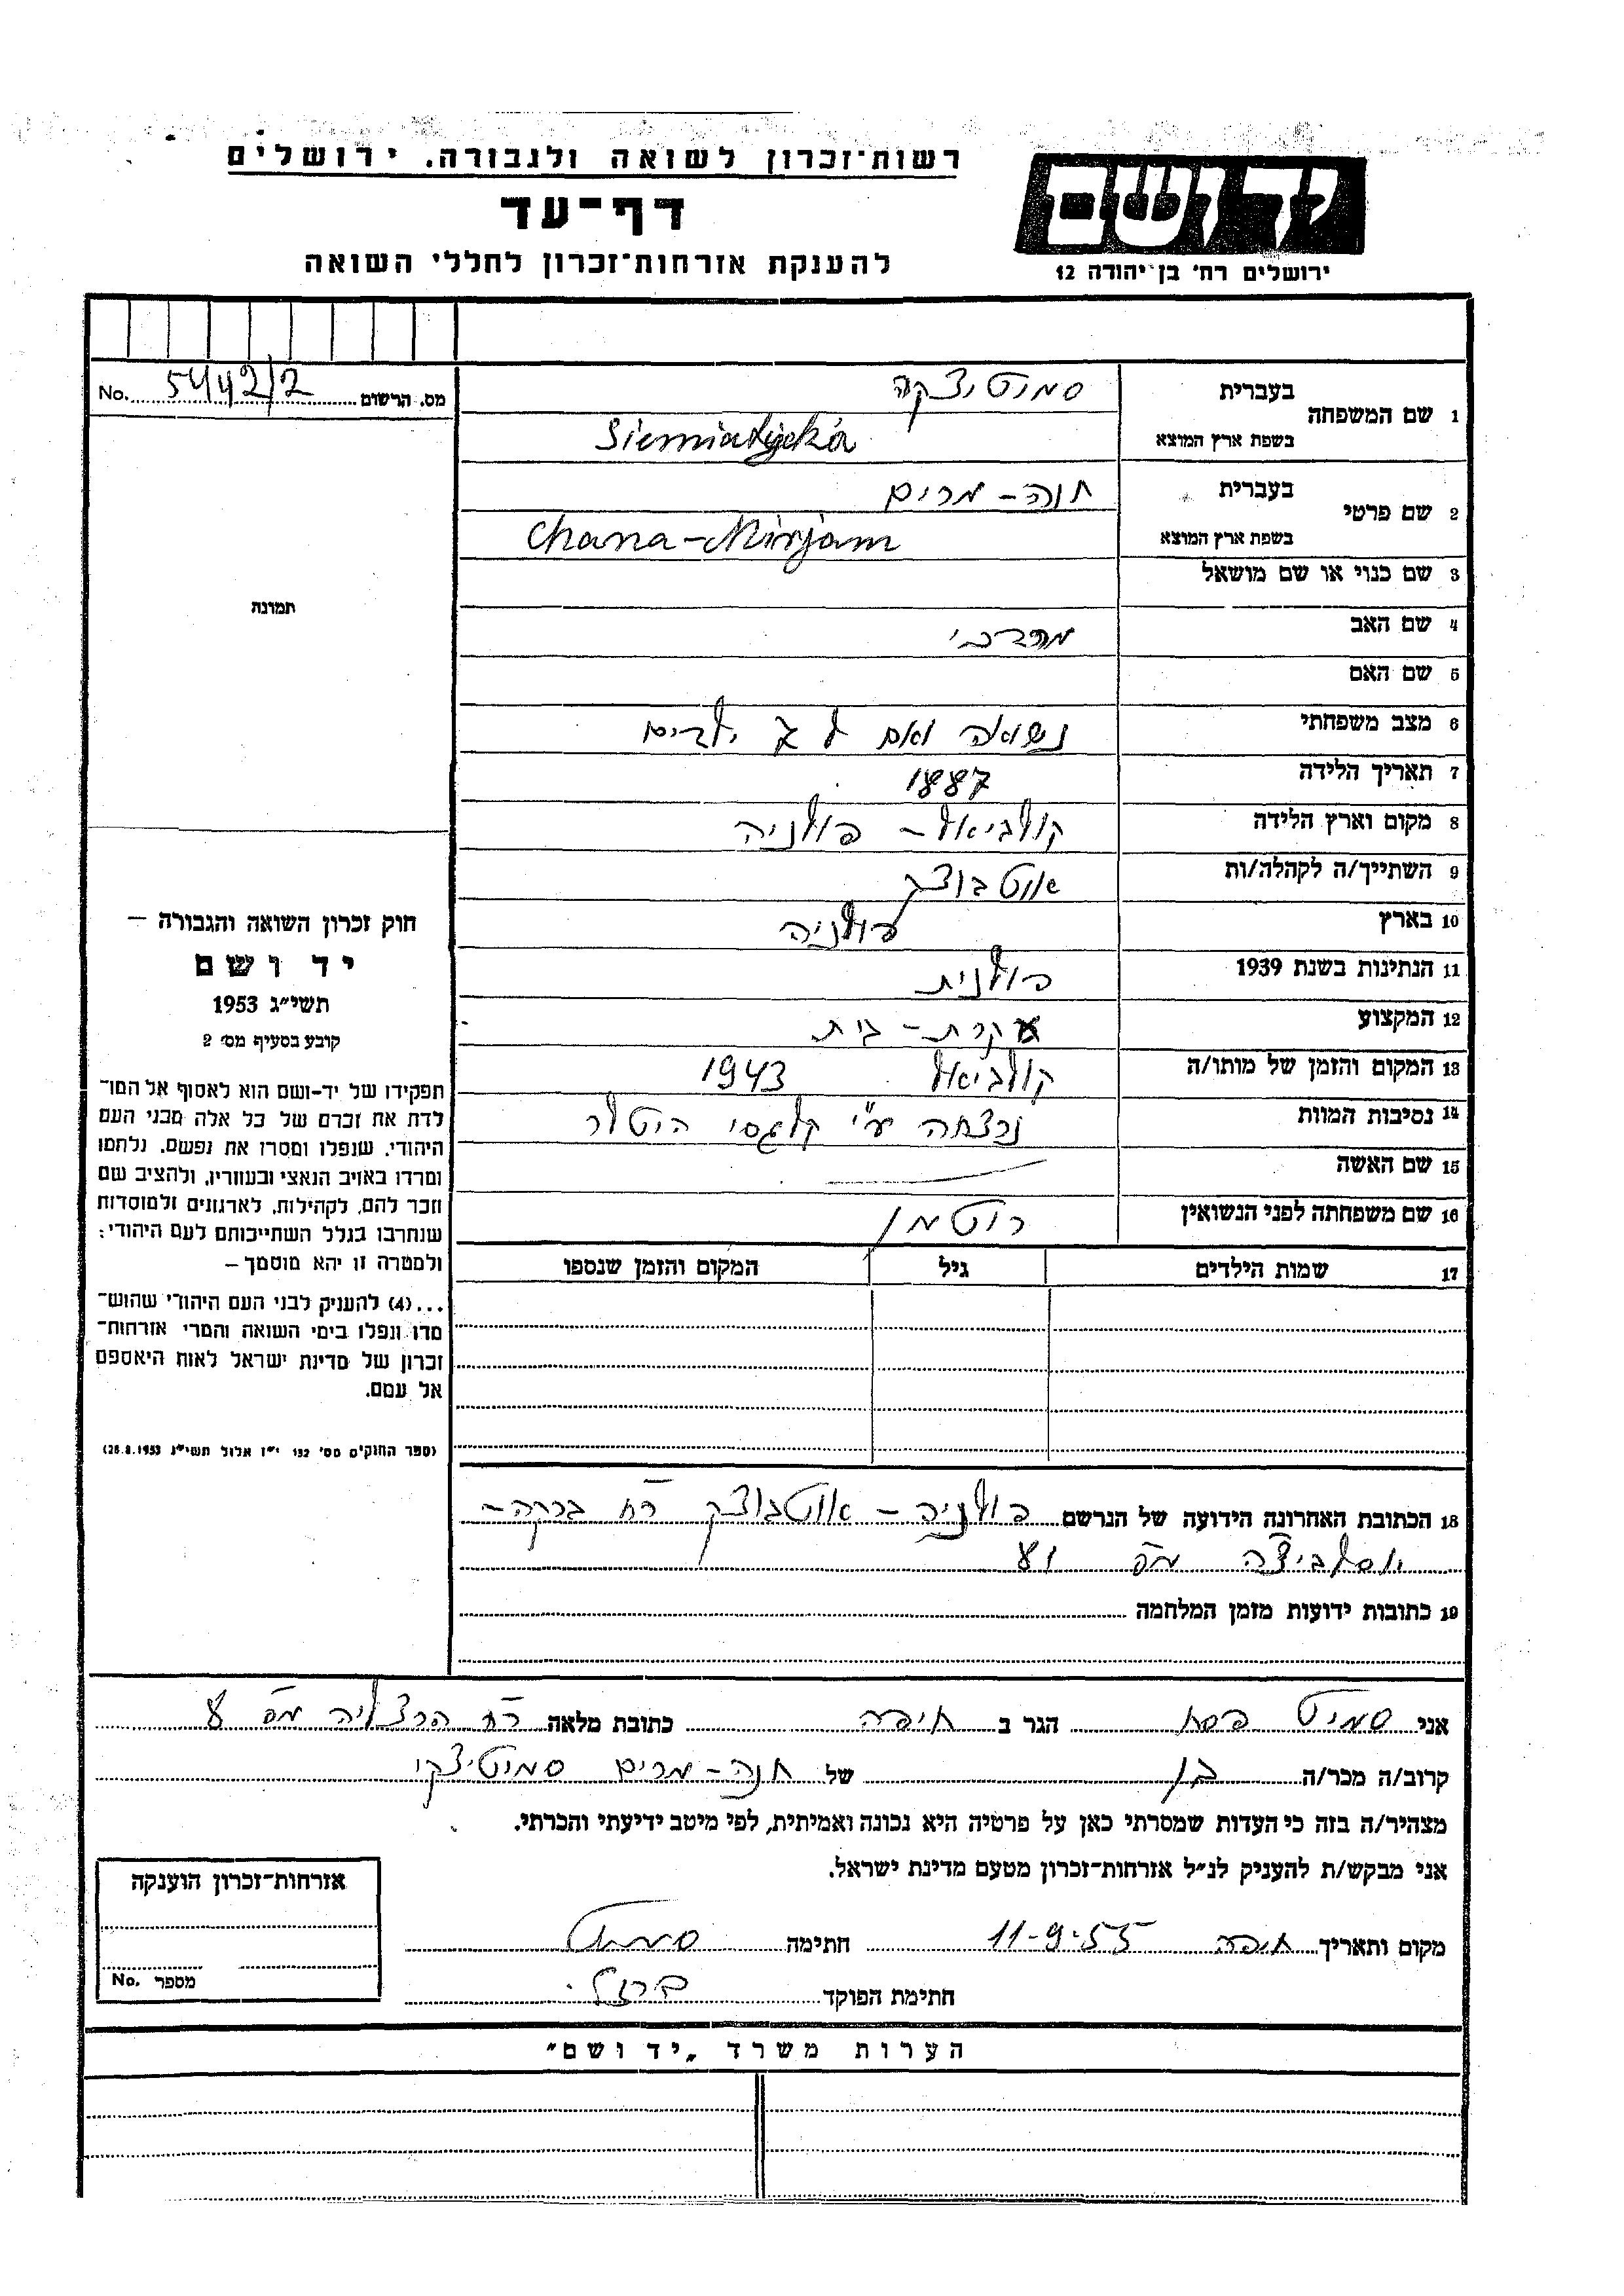 רשות־זכרון לשואה ולגבורה. ירושלים
דף־עד
להענקת אזרחות־זכרון לחללי השואה
יד ושם
ירושלים רח׳ בן יהודה 12
מס. הרשום 5442/2 No.
1 שם המשפחה בעברית סמיטיצקה
בשפת ארץ המוצא Siemiatycka
2 שם פרטי בעברית חנה - מרים
בשפת ארץ המוצא Chana-Mirjam
3 שם כנוי או שם מושאל
4 שם האב מרדכי
5 שם האם
6 מצב משפחתי נשואה ואם ל ילדים
7 תאריך הלידה 1887
8 מקום וארץ הלידה קולביאל - פולניה
9 השתייך/ה לקהלה/ות אוטבוצק
10 בארץ פולניה
11 הנתינות בשנת 1939 פולנית
12 המקצוע עקרת - בית
13 המקום והזמן של מותו/ה קולביאל 1943
14 נסיבות המוות נרצחה ע״י קלגסי היטלר
15 שם האשה
16 שם משפחתה לפני הנשואין רוטמן
17 שמות הילדים גיל המקום והזמן שנספו
18 הכתובת האחרונה הידועה של הנרשם פולניה - אוטבוצק רח
מס
19 כתובות ידועות מזמן המלחמה
תמונה
חוק זכרון השואה והגבורה —
יד ושם
תשי״ג 1953
קובע בסעיף מס׳ 2
תפקידו של יד-ושם הוא לאסוף אל המו־
לדת את זכרם של כל אלה מבני העם
היהודי, שנפלו ומסרו את נפשם, נלחמו
ומרדו באויב הנאצי ובעוזריו, ולהציב שם
וזכר להם, לקהילות, לארגונים ולמוסדות
שנחרבו בגלל השתייכותם לעם היהודי;
ולמטרה זו יהא מוסמך—
...(4) להעניק לבני העם היהודי שהוש־
מדו ונפלו בימי השואה והמרי אזרחות־
זכרון של מדינת ישראל לאות היאספם
אל עמם.
(ספר החוקים מס׳ 132 י״ז אלול תשי״ג 28.8.1953)
אני סמיט פסח הגר ב חיפה כתובת מלאה רח הרצליה מס
קרוב/ה מכר/ה בן של חנה - מרים סמיטיצקי
מצהיר/ה בזה כי העדות שמסרתי כאן על פרטיה היא נכונה ואמיתית, לפי מיטב ידיעתי והכרתי.
אני מבקש/ת להעניק לנ״ל אזרחות־זכרון מטעם מדינת ישראל.
מקום ותאריך חיפה 11-9-55 חתימה סמיט
חתימת הפוקד ברזל
אזרחות־זכרון הוענקה
מספר No.
הערות משרד „יד ושם״